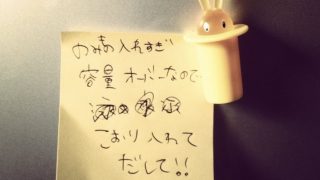 入れすぎ
容量オーバーなので
こおり入れて
だして!!